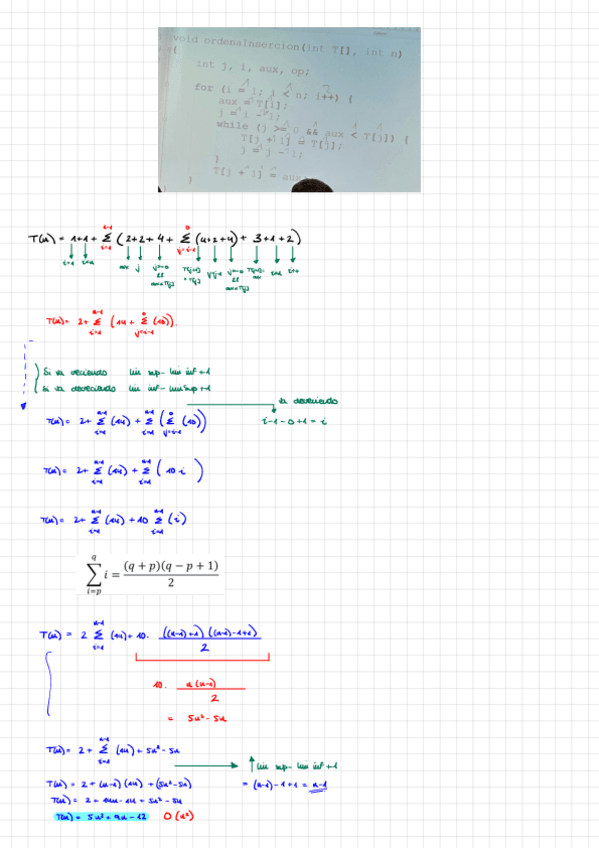 void ordenaInsercion(int T[], int n)
{
int j, i, aux, op;
for (i = 1; i < n; i++) {
aux = T[i];
j = i - 1;
while (j >= 0 && aux < T[j]) {
T[j + 1] = T[j];
j = j - 1;
}
T[j + 1] = aux
}
T(n) = 1+1+ Σ (2+2+4+ Σ (4+2+4)+ 3+1+2)
n-1 0
i=1 j=i-1
i=1 i<n aux j j>=0 && aux<T[j] T[j+1] = T[j] j=j-1 j>=0 && aux<T[j] T[j+1]= aux i<n i++
T(n)= 2+ Σ (14+ Σ (10)).
n-1 0
i=1 j=i-1
Si va creciendo lim sup- lim inf +1
si va decreciendo lim inf- lim sup +1
va decreciendo
T(n)= 2+ Σ (14) + Σ ( Σ (10))
n-1 n-1 0
i=1 i=1 j=i-1
i-1-0+1 = i
T(n)= 2+ Σ (14) + Σ ( 10 i )
n-1 n-1
i=1 i=1
T(n)= 2+ Σ (14) + 10 Σ (i)
n-1 n-1
i=1 i=1
q
∑ i = (q + p)(q − p + 1)
i=p 2
T(n) = 2 Σ (14)+ 10. ((n-1)+1) ((n-1)-1+1)
n-1
i=1 2
10. n(n-1)
2
= 5n²-5n
T(n)= 2 + Σ (14) + 5n²-5n
n-1
i=1
↑ lim sup- lim inf +1
T(n)= 2 + (n-1) (14) +(5n²-5n) = (n-1)-1+1 = n-1
T(n)= 2 + 14n -14 + 5n²-5n
T(n)= 5n² + 9n -12 O(n²)